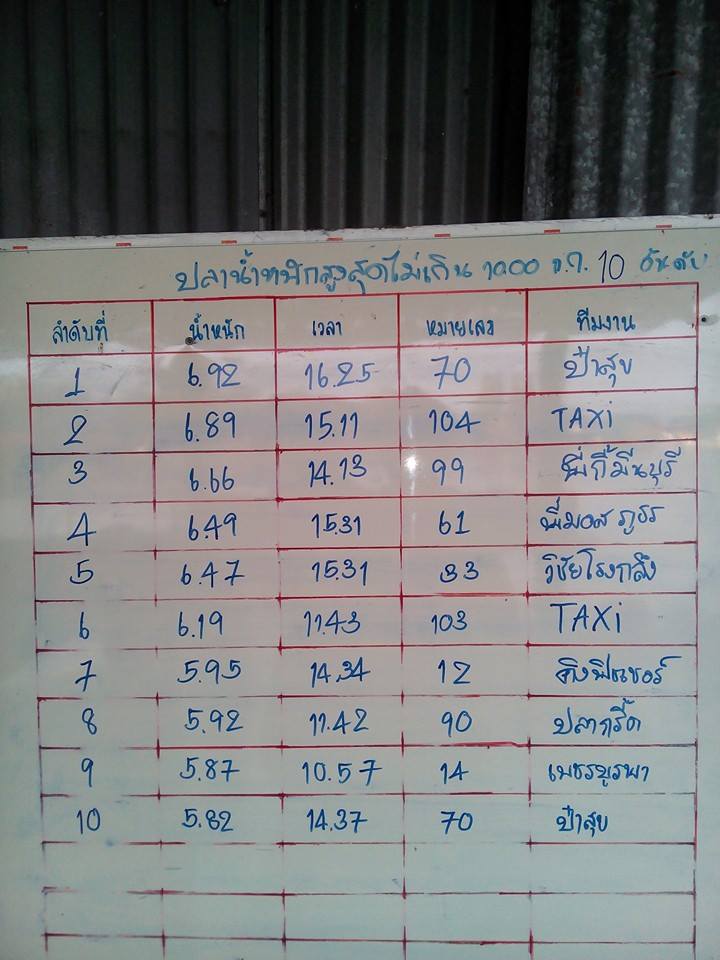 ปลาน้ำหนักสูงสุดไม่เกิน 1000 จ.ก. 10 อันดับ
ลำดับที่ น้ำหนัก เวลา หมายเลข ทีมงาน
1 6.92 16.25 70 ป๋าสุข
2 6.89 15.11 104 TAXi
3 6.66 14.13 99 พี่กี้มีนบุรี
4 6.49 15.31 61 พี่มอส
5 6.47 15.31 33 วิชัยโรงกลึง
6 6.19 11.43 103 TAXi
7 5.95 14.34 12 คิงฟิชเชอร์
8 5.92 11.42 90 ปลากรี้ด
9 5.87 10.57 14 เพชรบูรพา
10 5.82 14.37 70 ป๋าสุข